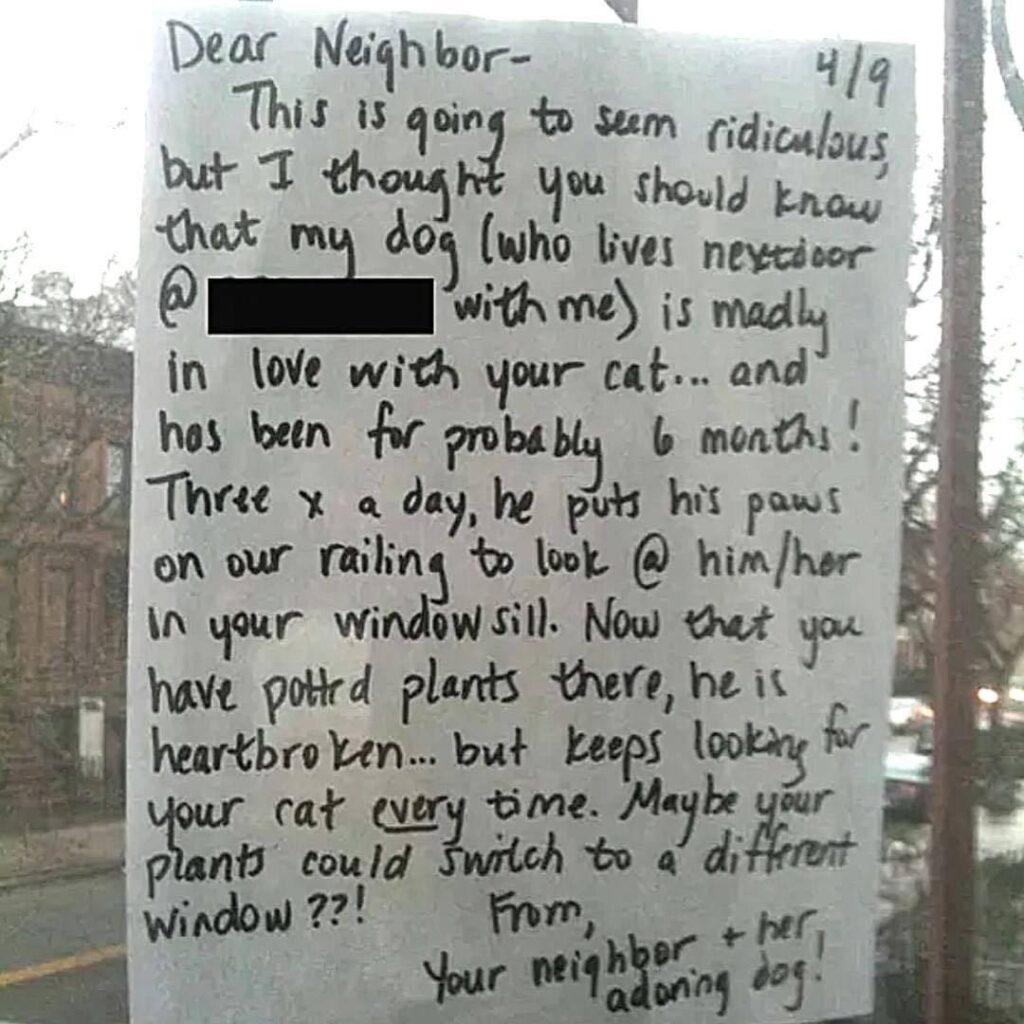 Dear Neighbor- 4/9
This is going to seem ridiculous,
but I thought you should know
that my dog (who lives nextdoor
@ with me) is madly
in love with your cat... and
has been for probably 6 months!
Three x a day, he puts his paws
on our railing to look @ him/her
in your windowsill. Now that you
have potted plants there, he is
heartbroken... but keeps looking for
your cat every time. Maybe your
plants could switch to a different
window??!
From,
Your neighbor + her
adoring dog!